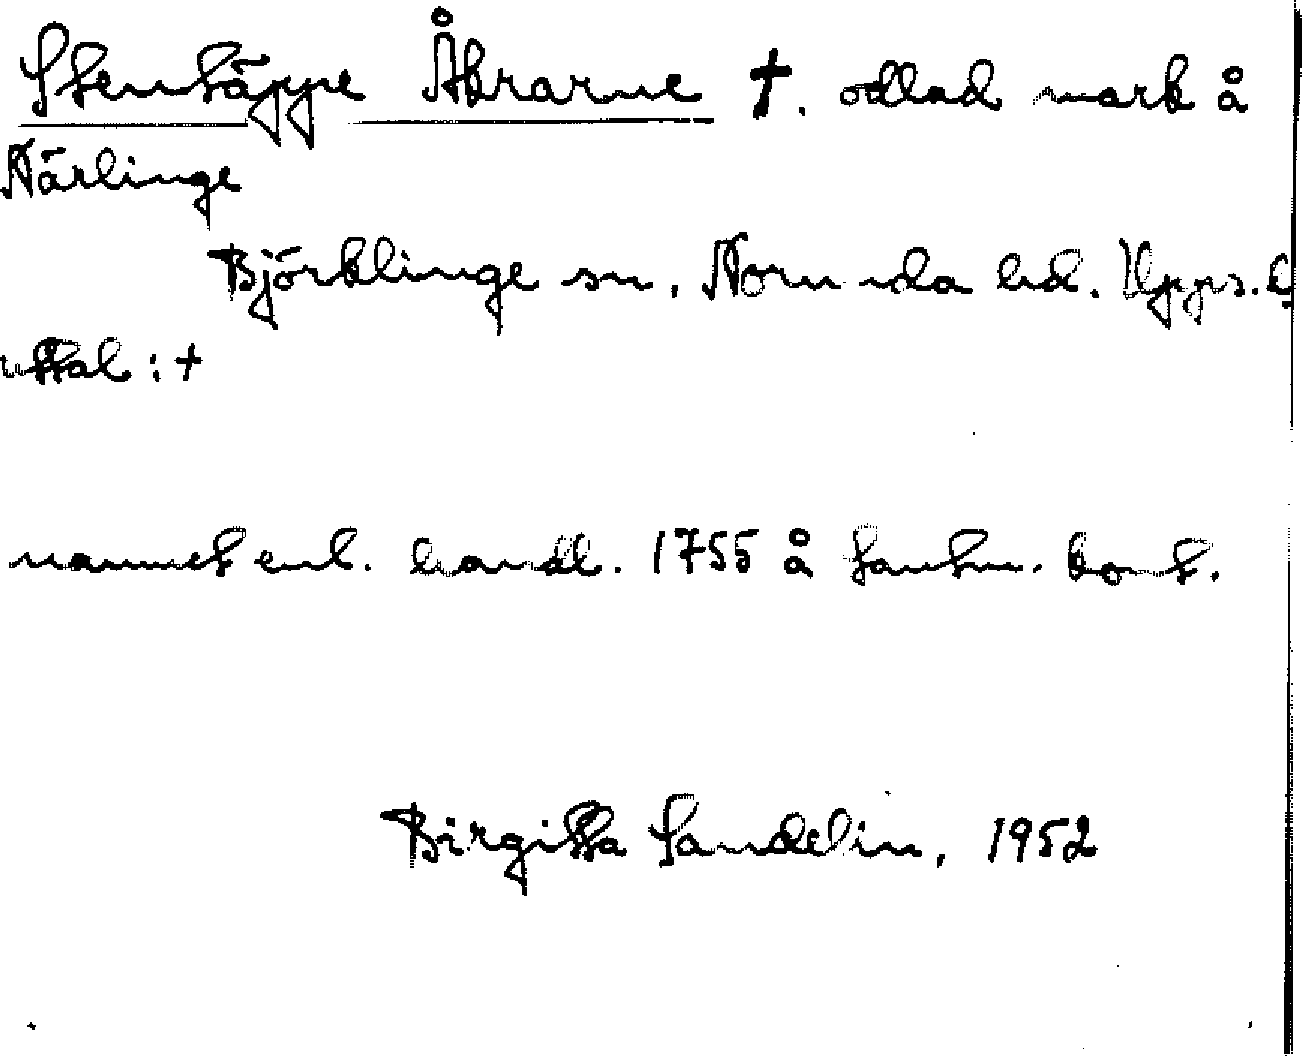 Stentäppe Åkrarne †. odlad mark å
Närlinge
Björklinge sn. Norunda hd. Upps. l
uttal : +
namnet enl. handl. 1755 å lantm. kont.
Birgitta Sandelin, 1952